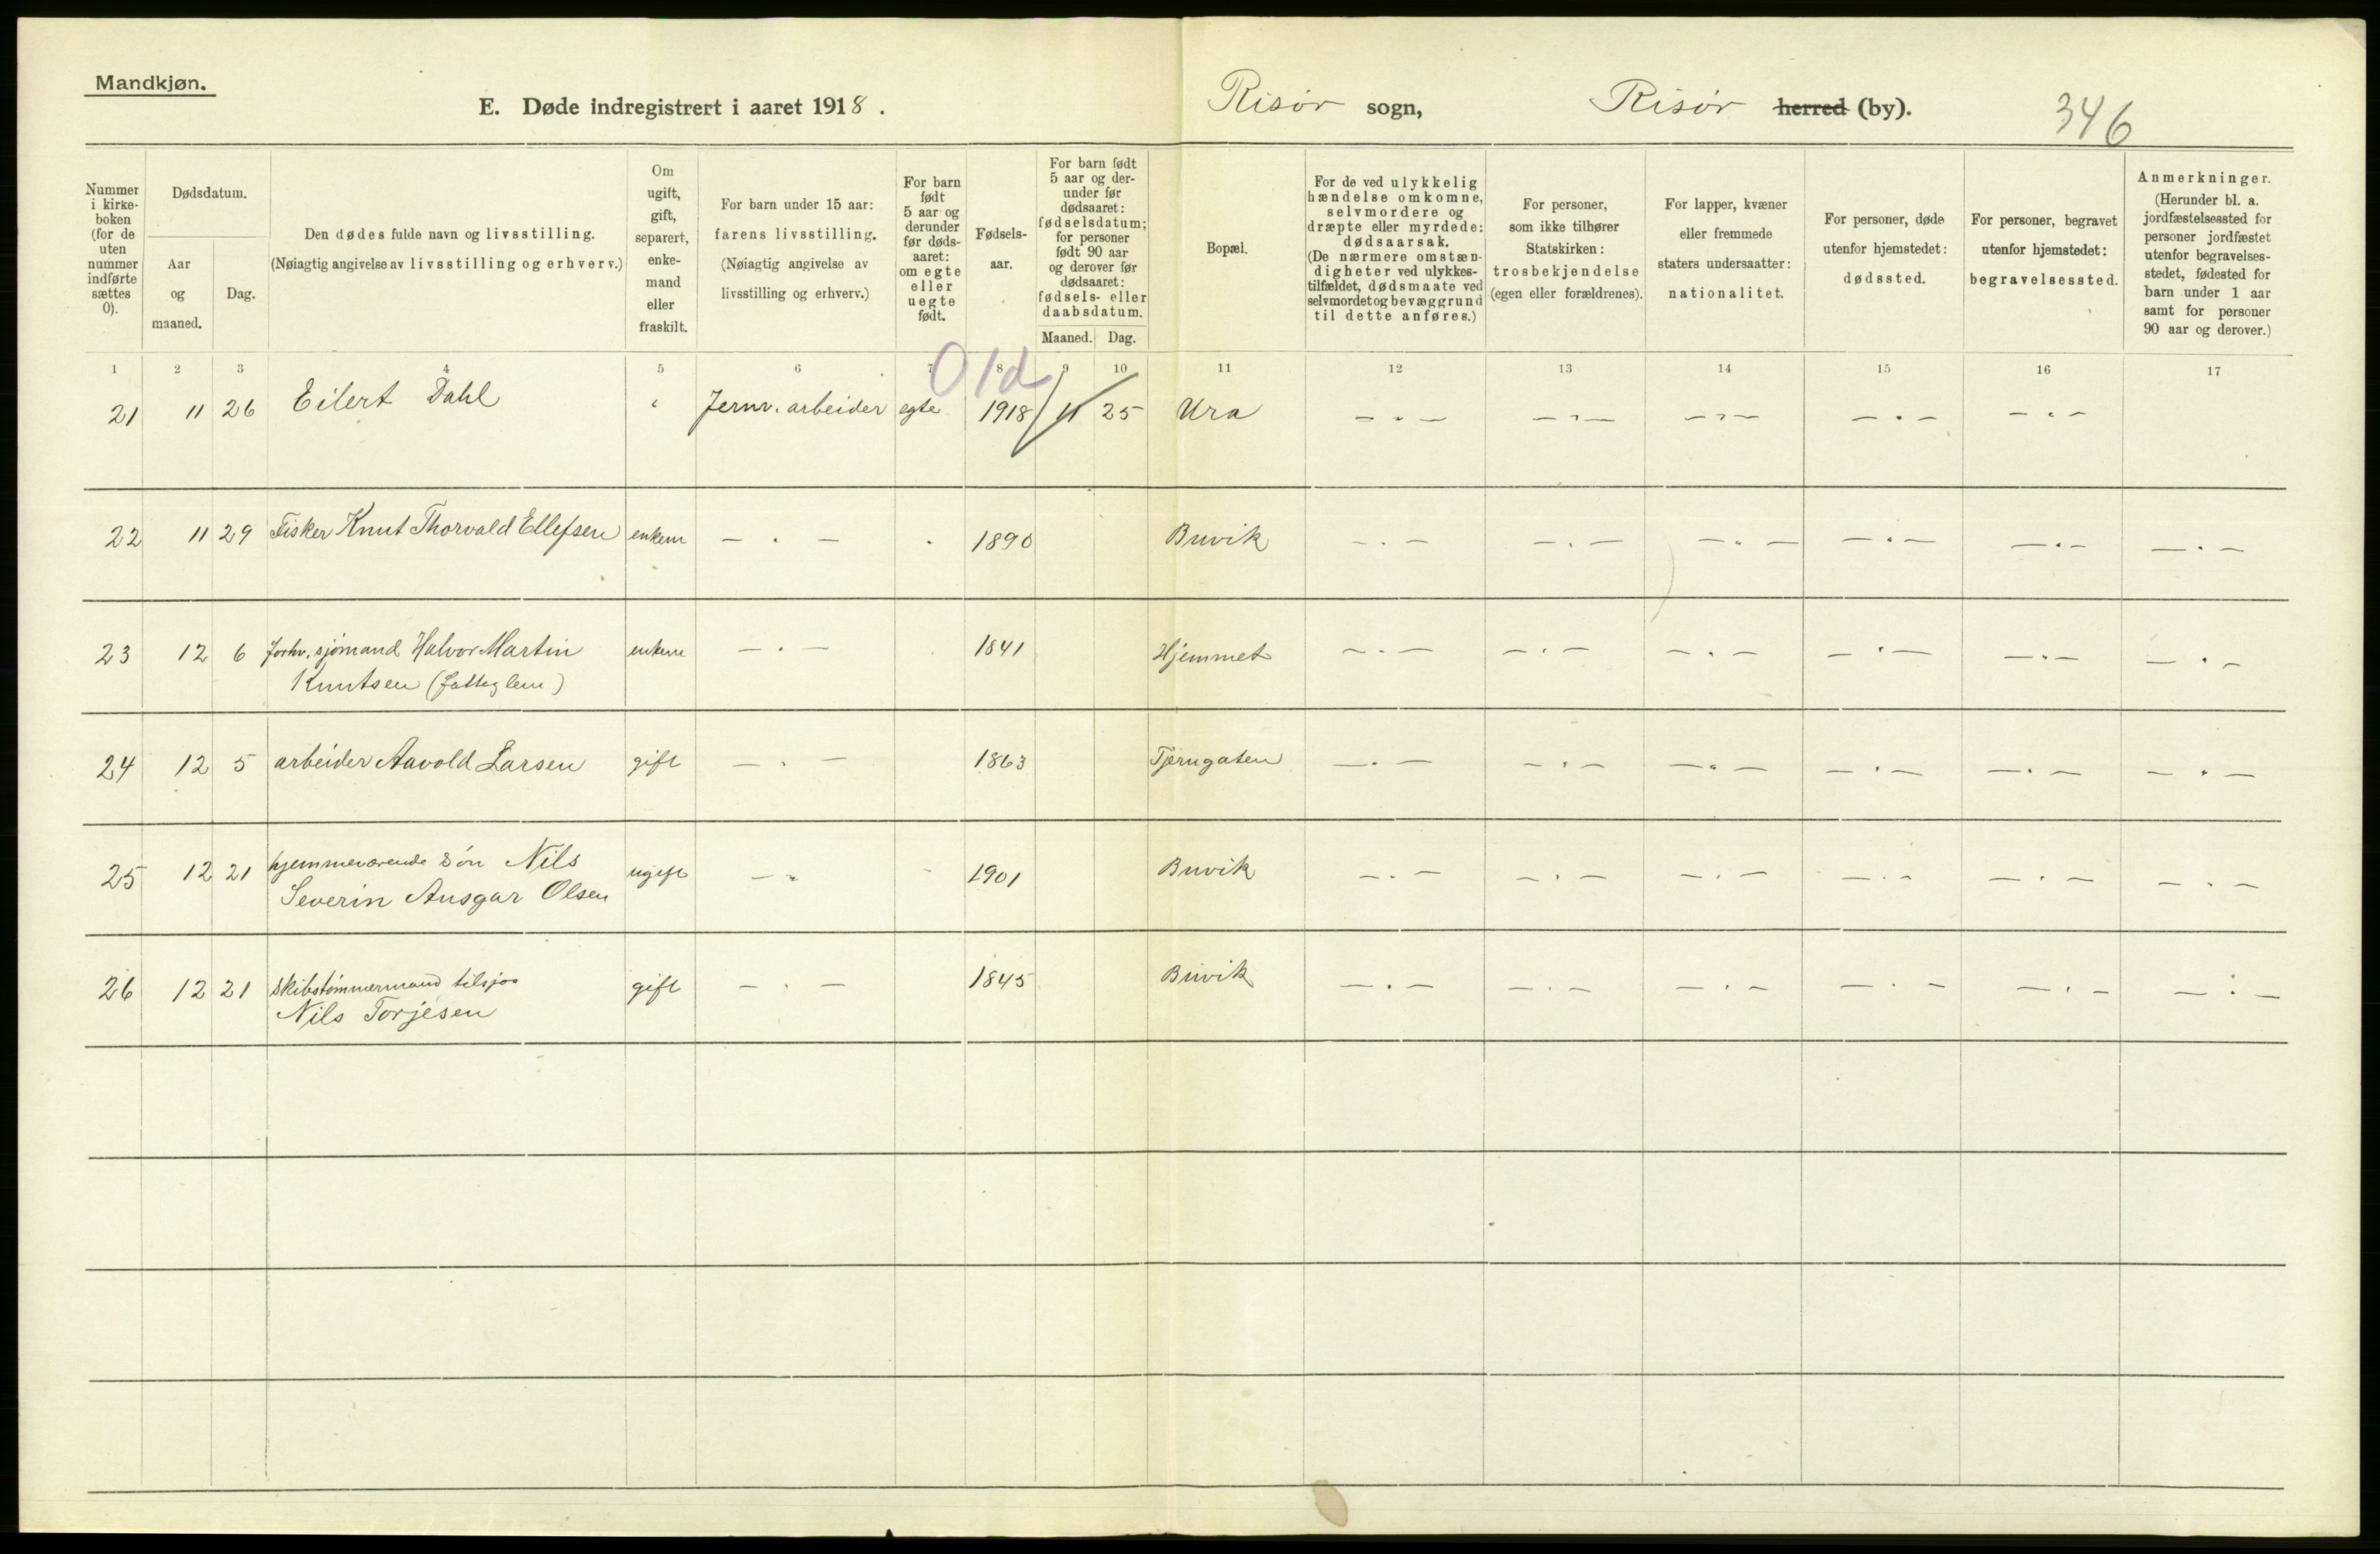 Mandkjøn.
E. Døde indregistrert i aaret 1918.
Risør sogn, Risør herred (by).
346
Nummer
i kirke-
boken
(for de
uten
nummer
indførte
sættes
0).
Dødsdatum.
Aar
og
maaned.
Dag.
Den dødes fulde navn og livsstilling.
(Nøiagtig angivelse av livsstilling og erhverv.)
Om
ugift,
gift,
separert,
enke-
mand
eller
fraskilt.
For barn under 15 aar:
farens livsstilling.
(Nøiagtig angivelse av
livsstilling og erhverv.)
For barn
født
5 aar og
derunder
før døds-
aaret:
om egte
eller
uegte
født.
Fødsels-
aar.
For barn født
5 aar og der-
under før
dødsaaret:
fødselsdatum;
for personer
født 90 aar
og derover før
dødsaaret:
fødsels- eller
daabsdatum.
Maaned. Dag.
Bopæl.
For de ved ulykkelig
hændelse omkomne,
selvmordere og
dræpte eller myrdede:
dødsaarsak.
(De nærmere omstæn-
digheter ved ulykkes-
tilfældet, dødsmaate ved
selvmordet og bevæggrund
til dette anføres.)
For personer,
som ikke tilhører
Statskirken:
trosbekjendelse
(egen eller forældrenes).
For lapper, kvæner
eller fremmede
staters undersaatter:
nationalitet.
For personer, døde
utenfor hjemstedet:
dødssted.
For personer, begravet
utenfor hjemstedet:
begravelsessted.
Anmerkninger.
(Herunder bl. a.
jordfæstelsessted for
personer jordfæstet
utenfor begravelses-
stedet, fødested for
barn under 1 aar
samt for personer
90 aar og derover.)
1 2 3 4 5 6 7 8 9 10 11 12 13 14 15 16 17
01d
21 11 26 Eilert Dahl " Jernv. arbeider egte 1918 11 25 Ura
22 11 29 Fisker Knut Thorvald Ellefsen enkem 1890 Buvik
23 12 6 forhv. sjømand Halvor Martin enkem 1841 Hjemmet
Knutsen (fattiglem)
24 12 5 arbeider Aavold Larsen gift 1863 Tjerngaten
25 12 21 hjemmeværende søn Nils ugift 1901 Buvik
Severin Ansgar Olsen
26 12 21 skibstømmermand tilsjøs gift 1845 Buvik
Nils Torjesen